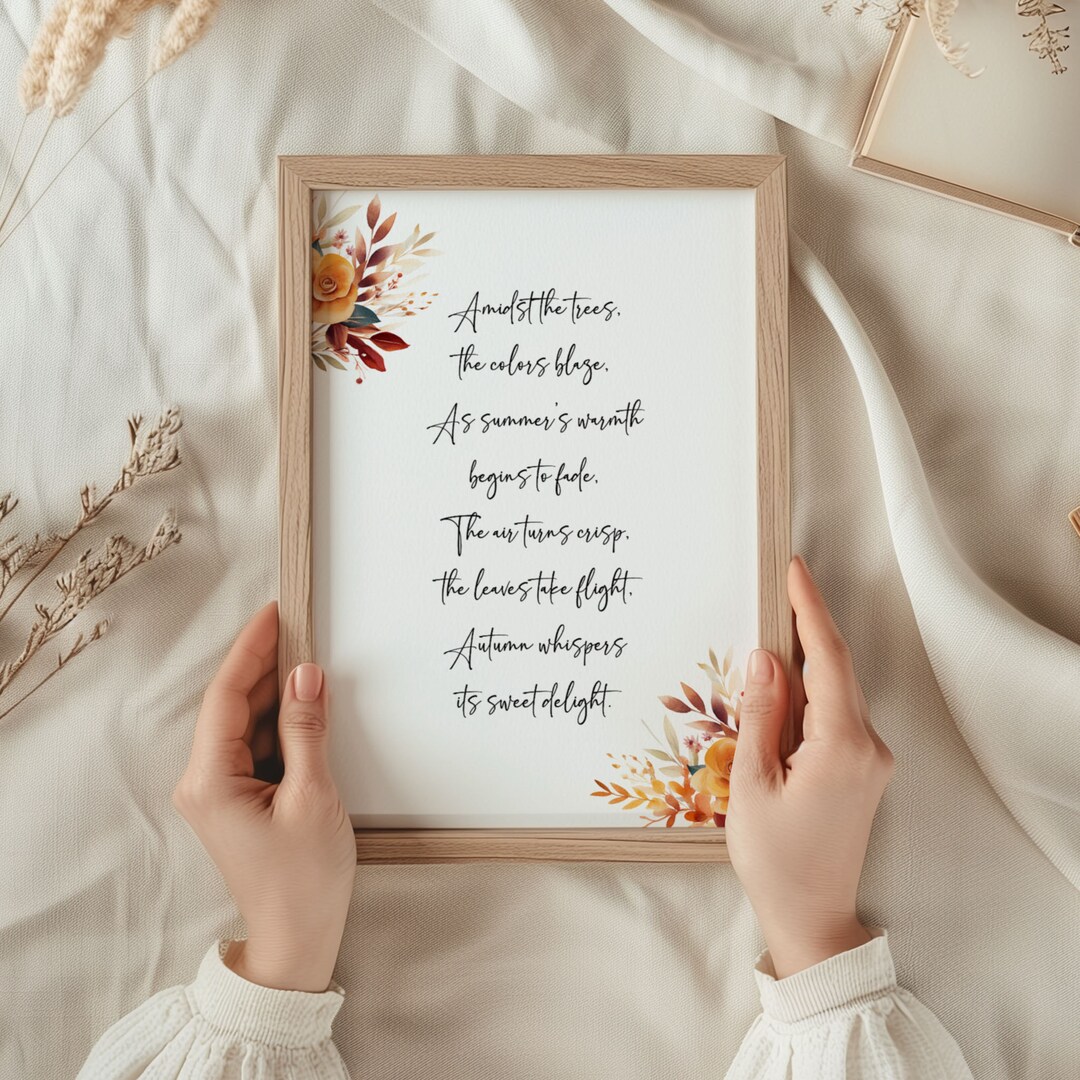 Amidst the trees,
the colors blaze,
As summer's warmth
begins to fade,
The air turns crisp,
the leaves take flight,
Autumn whispers
its sweet delight.